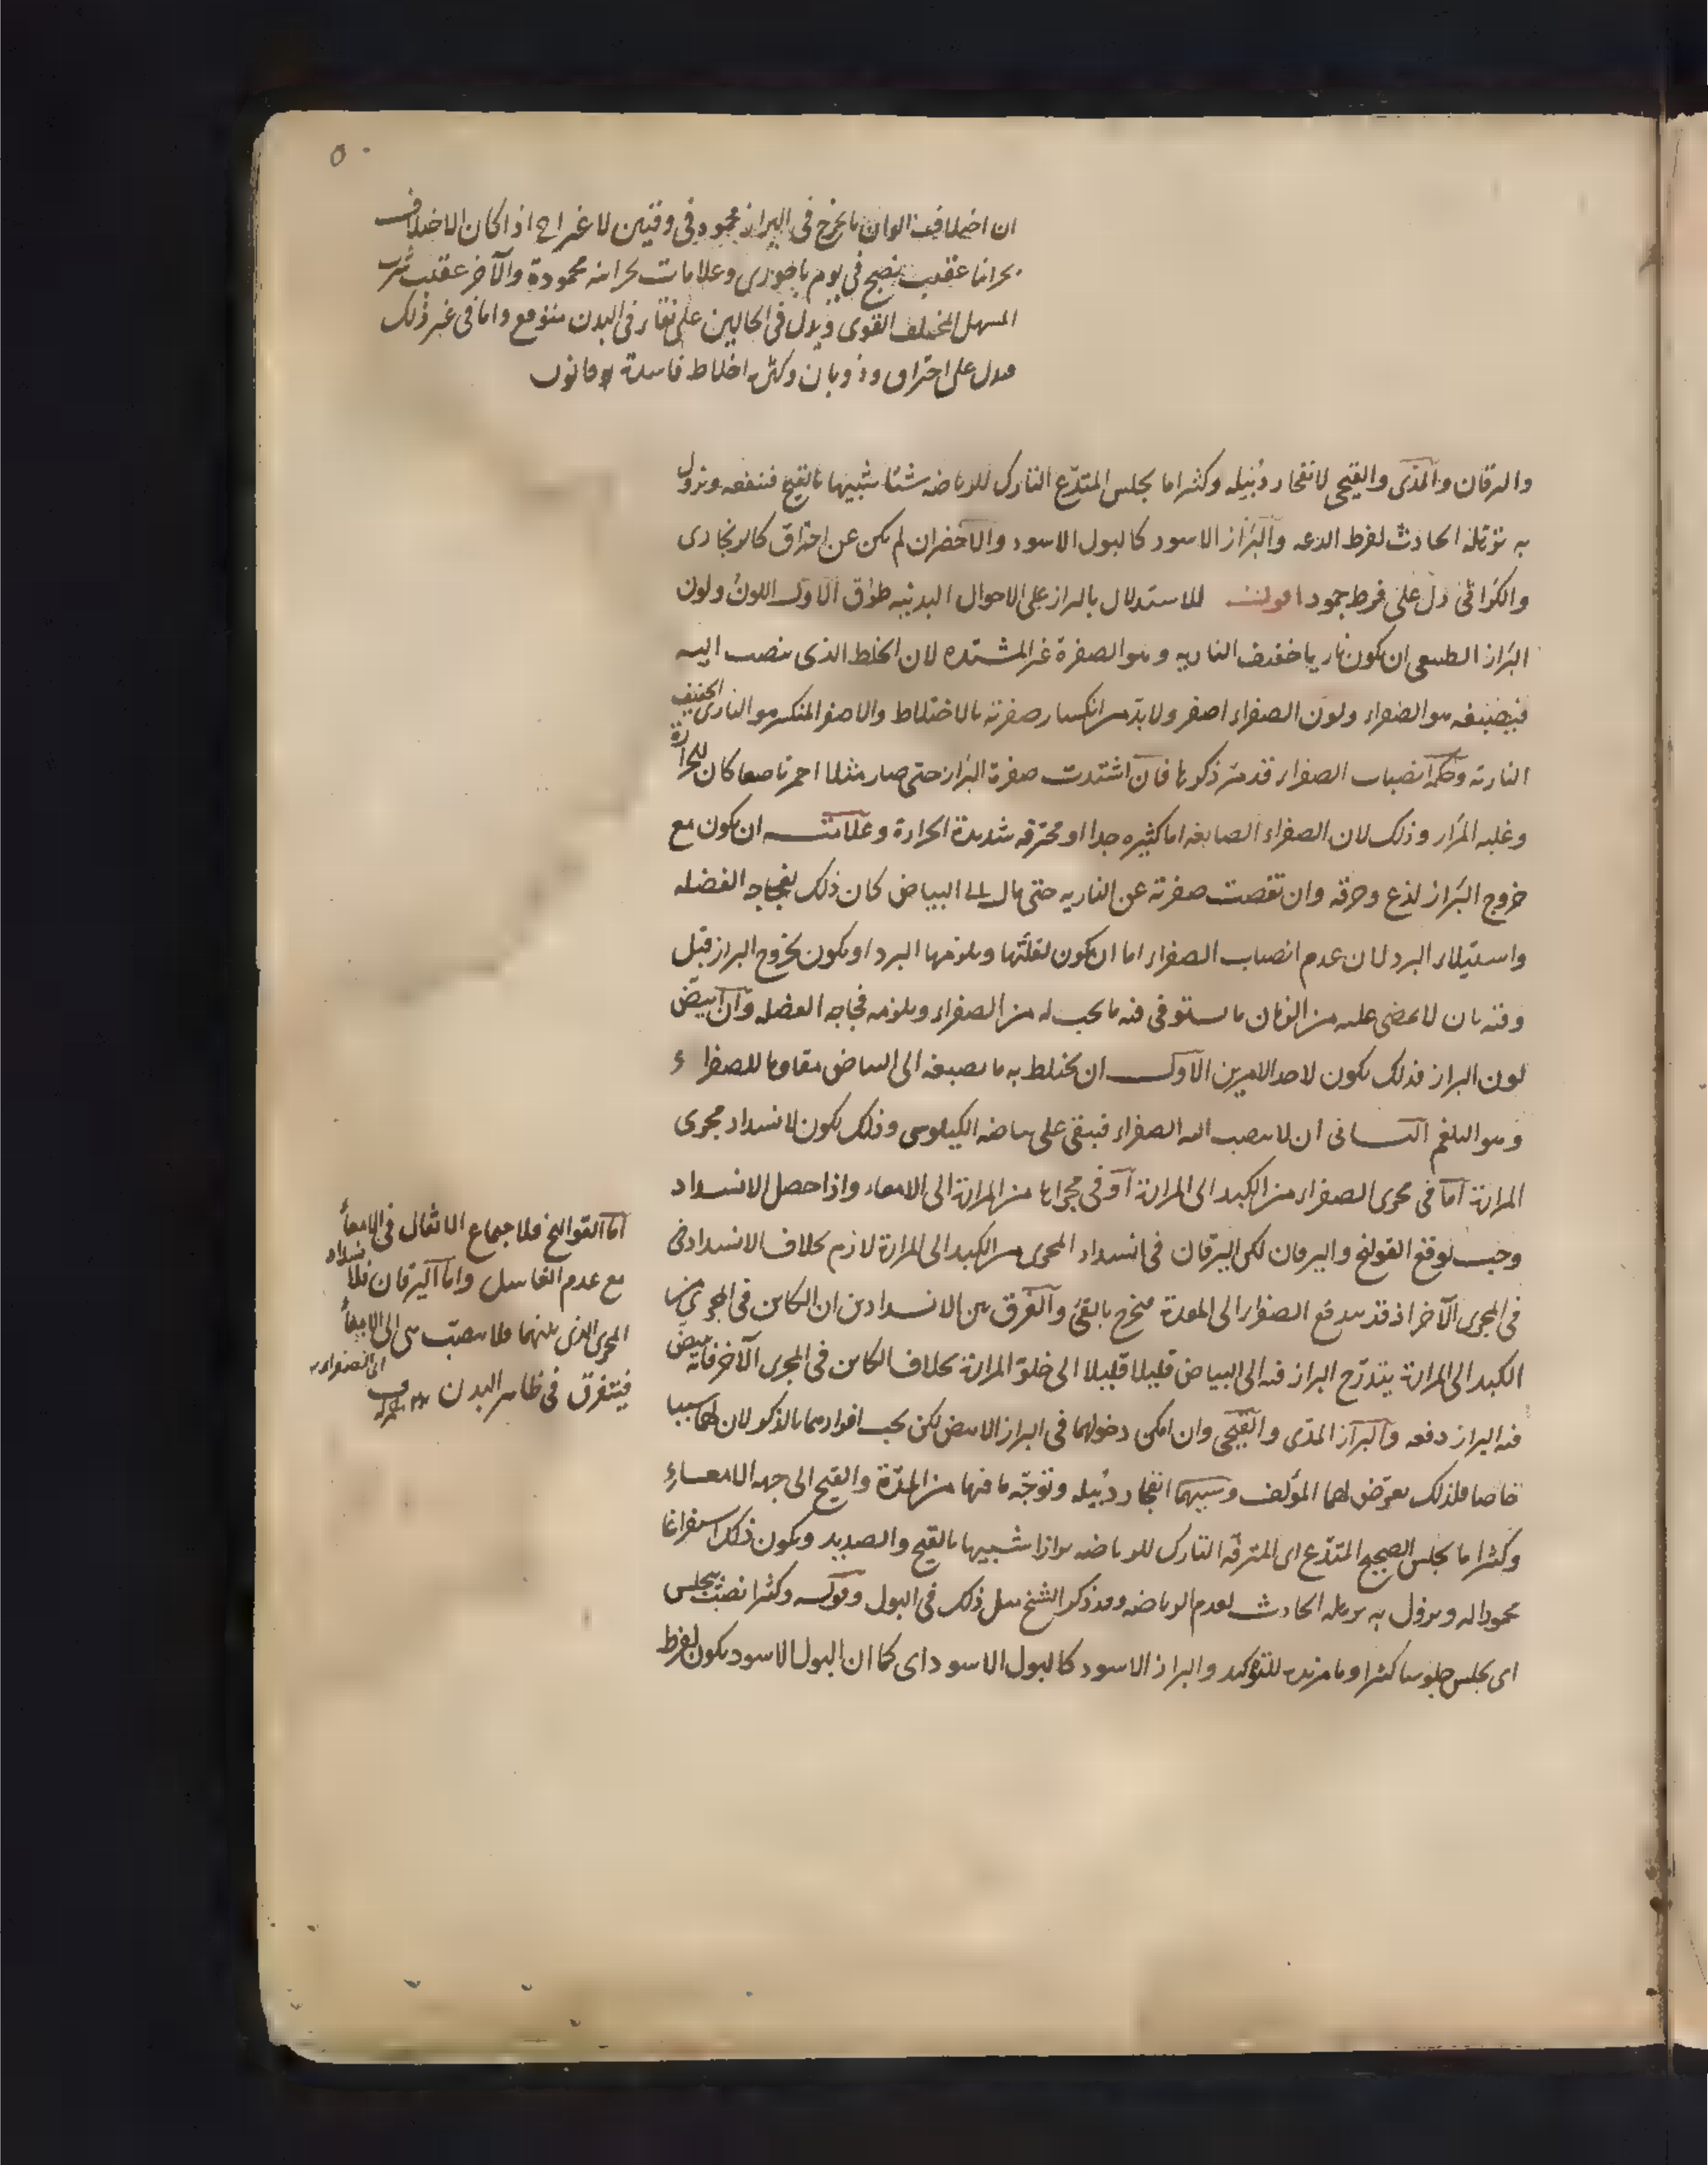 ان اختلاف الوان ما يخرج فى البراز محمود فى وقتين لا غير احدهما اذا كان الاختلاف
بحرانا عقيب نضج فى يوم باحورى وعلامات بحرانيه محمودة والآخر عقيب شرب
المسهل المختلف القوى ويدل فى الحالين على نقاء فى البدن متوقع واما فى غير ذلك
فيدل على احتراق وذوبان وكثرة اخلاط فاسدة
واليرقان والمدّى والقيحى لانفجار دبيله وكثيرا ما يجلس المتدّع التارك للرياضه شيئا شبيها بالقيح فينفعه ويزول
به ترهّله الحادث لفرط الدعه والبراز الاسود كالبول الاسود والاخضر ان لم يكن عن احتراق كالزنجارى
والكراثى دل على فرط جمود اقول للاستدلال بالبراز على الاحوال البدنيه طرق الاول اللون ولون
البراز الطبيعى ان يكون ناريا خفيف الناريه وهو الصفرة غير المشتده لان الخلط الذى ينصب اليه
فيصبغه هو الصفراء ولون الصفراء اصفر ولا بد من انكسار صفرته بالاختلاط والاصفر المنكسر هو النارى الخفيف
الناريه وحكمة انصباب الصفراء قد مرّ ذكرها فان اشتدت صفرة البراز حتى صار مثلا احمر ناصعا كان للحرارة
وغلبه المرار وذلك لان الصفراء الصابغه اما كثيره جدا او محترقه شديدة الحرارة وعلامته ان يكون مع
خروج البراز لذع وحرقه وان نقصت صفرته عن الناريه حتى مال الى البياض كان ذلك لفجاجه الفضله
واستيلاء البرد لان عدم انصباب الصفراء اما ان يكون لقلّتها ويلزمها البرد او يكون لخروج البراز قبل
وقته بان لا يمضى عليه من الزمان ما يستوفى فيه ما يجب له من الصفراء ويلزمه فجاجه الفضله وان ابيضّ
لون البراز فذلك يكون لاحد الامرين الاول ان يختلط به ما يصبغه الى البياض مقاوما للصفراء
وهو البلغم الثانى ان لا ينصب اليه الصفراء فيبقى على بياضه الكيلوسى وذلك يكون لانسداد مجرى
المرارة اما فى مجرى الصفراء من الكبد الى المرارة او فى مجراها من المرارة الى الامعاء واذا حصل الانسداد
وجب توقع القولنج واليرقان لكن اليرقان فى انسداد المجرى من الكبد الى المرارة لازم بخلاف الانسداد فى
فى المجرى الآخر اذ قد يندفع الصفراء الى المعدة فيخرج بالقئ والفرق بين الانسدادين ان الكاين فى المجرى من
الكبد الى المرارة يتدرّج البراز فيه الى البياض قليلا قليلا الى خلو المرارة بخلاف الكاين فى المجرى الآخر فانه يبيض
فيه البراز دفعه والبراز المدّى والقيحى وان امكن دخولهما فى البراز الابيض لكن يجب افرادهما بالذكر لان لهما سببا
خاصا فلذلك تعرّض لهما المؤلف وسببهما انفجار دبيله وتوجّه ما فيها من المدّة والقيح الى جهه الامعاء
وكثيرا ما يجلس الصحيح المتدّع اى المترفّه التارك للرياضه برازا شبيها بالقيح والصديد ويكون ذلك استفراغا
محمودا له ويزول به ترهله الحادث لعدم الرياضه وقد ذكر الشيخ مثل ذلك فى البول وقوله وكثيرا نصب بيجلس
اى يجلس جلوسا كثيرا وما مزيدة للتوكيد والبراز الاسود كالبول الاسود اى كما ان البول الاسود يكون لفرط
اما القوالنج فلاجتماع الاثفال فى الامعاء
مع عدم الغاسل واما اليرقان فلانسداد
المجرى الذى بينهما فلا ينصبّ شى الى الامعاء
اى الصفراء
فيتفرق فى ظاهر البدن